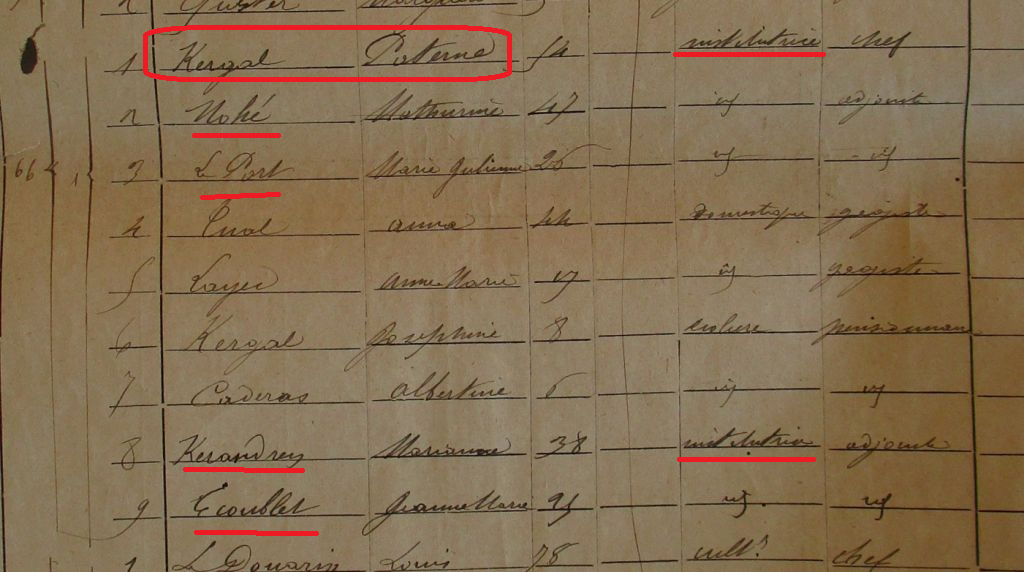 1 Kergal Paterne 54 institutrice chef
2 Nohé Mathurine 47 id adjointe
66 1 3 Le Port Marie Julienne 26 id id
4 Anna 44 domestique gagiste
5 Layec Anne Marie 17 id gagiste
6 Kergal Joséphine 8 écolière pensionnaire
7 Caderas Albertine 6 id id
8 Kerandrey Marianne 38 institutrice adjointe
9 Ecoublet Jeanne Marie 25 id id
1 Le Douarin Louis 78 cult.r chef